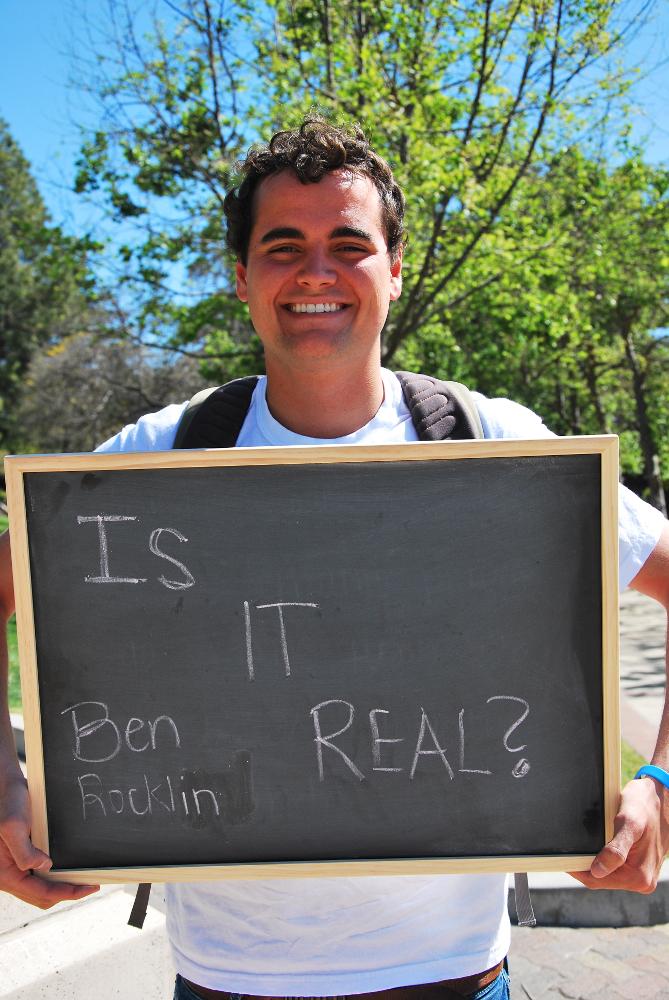 Is
IT
REAL?
Ben
Rocklin